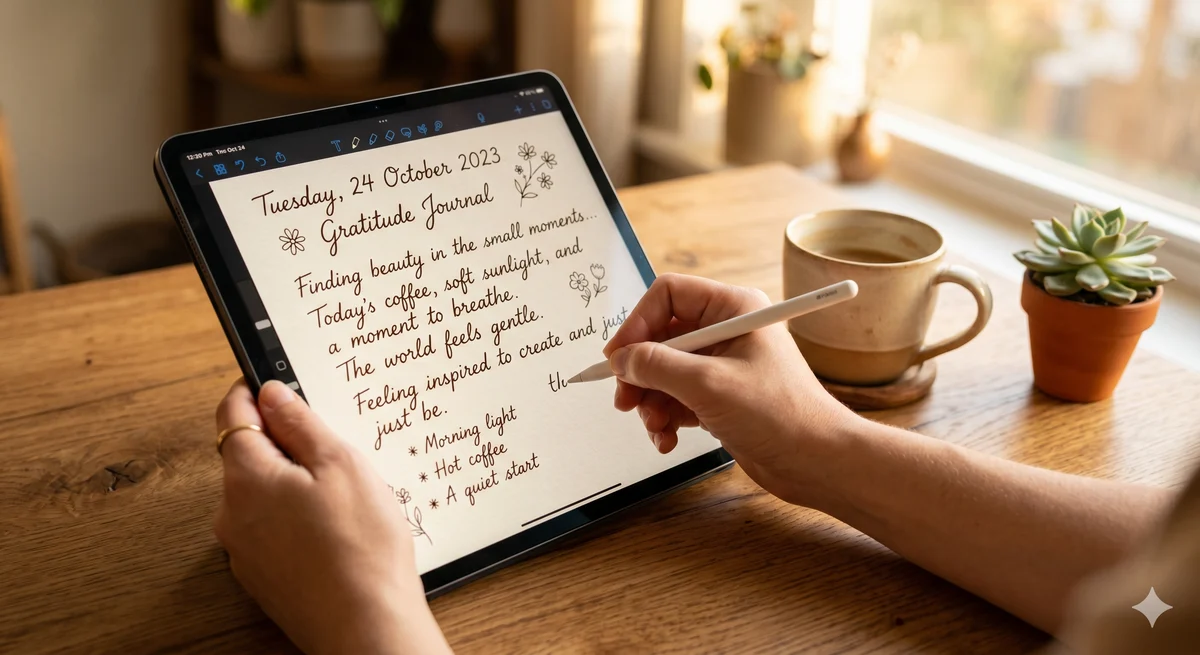 12:30 Pm Tue Oct 24
Tuesday, 24 October 2023
Gratitude Journal
Finding beauty in the small moments...
Today's coffee, soft sunlight, and
a moment to breathe.
The world feels gentle.
Feeling inspired to create and just
just be.
thu
* Morning light
* Hot coffee
* A quiet start